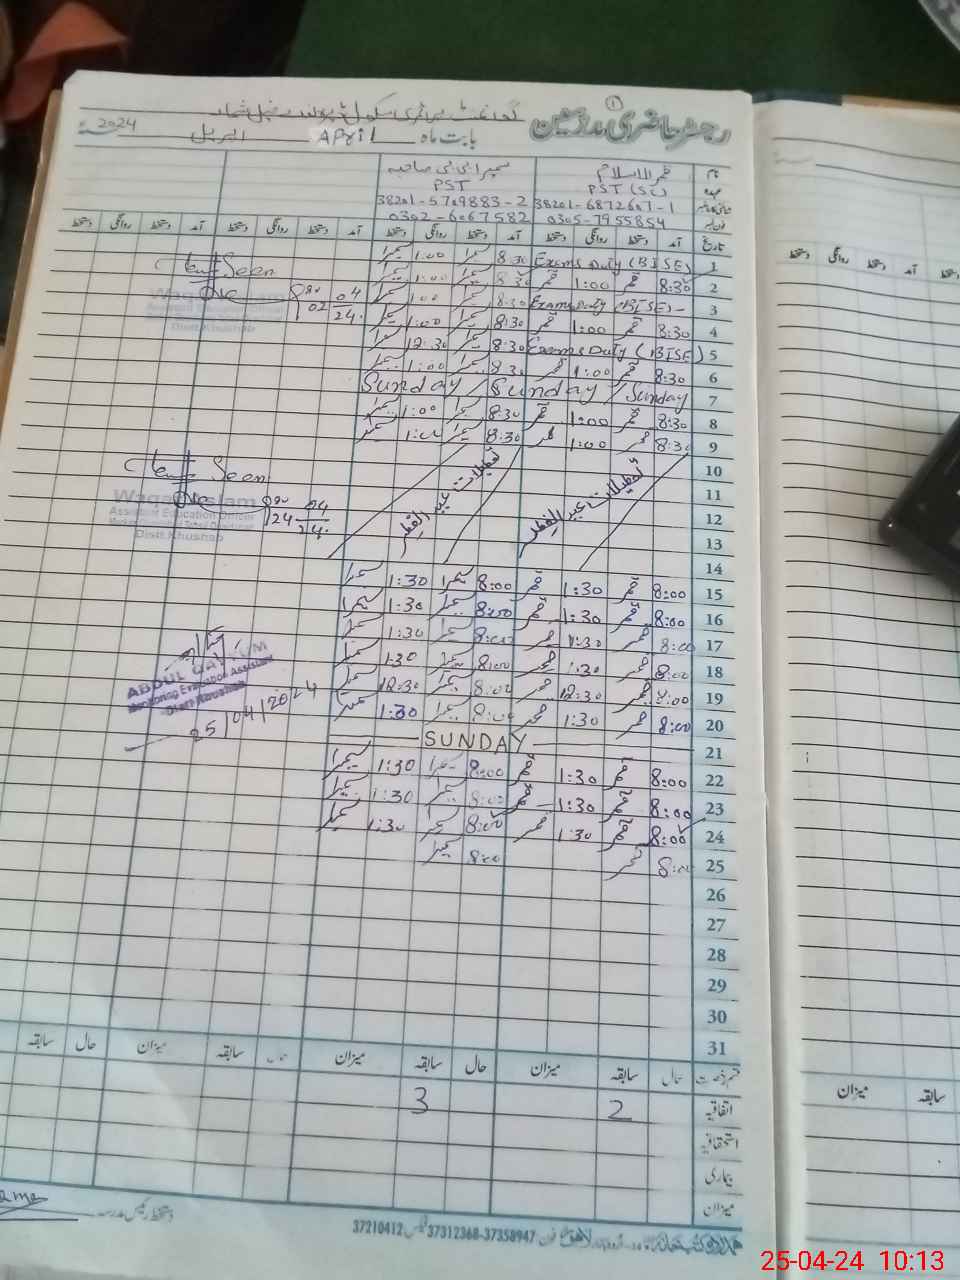 رجسٹر حاضری مدرسین
①
گورنمنٹ پرائمری سکول
بابت ماہ April اپریل 2024ء
نام قمرالاسلام
عہدہ PST (SC) PST
38201-6872607-1 38201-5709883-2
0305-7955854 0302-6067582
تاریخ آمد دستخط روانگی دستخط آمد دستخط روانگی دستخط آمد دستخط روانگی دستخط آمد دستخط روانگی دستخط
1 Exams Duty (BISE) 8:30 1:00
2 8:30 قمر 1:00 قمر 8:30 1:00
3 Exams Duty (BISE) 8:30 1:00
4 8:30 قمر 1:00 قمر 8:30 1:00
5 Exams Duty (BISE) 8:30 12:30
6 8:30 قمر 1:00 قمر 8:30 1:00
7 Sunday / Sunday / Sunday
8 8:30 قمر 1:00 قمر 8:30 1:00
9 8:30 قمر 1:00 قمر 8:30 1:00
10
11
12 تعطیلات عید الفطر تعطیلات عید الفطر
13
14
15 8:00 قمر 1:30 قمر 8:00 سمیرا 1:30 سمیرا
16 8:00 قمر 1:30 قمر 8:00 سمیرا 1:30 سمیرا
17 8:00 قمر 1:30 قمر 8:00 سمیرا 1:30 سمیرا
18 8:00 قمر 1:30 قمر 8:00 سمیرا 1:30 سمیرا
19 8:00 قمر 12:30 قمر 8:00 سمیرا 12:30 سمیرا
20 8:00 قمر 1:30 قمر 8:00 سمیرا 1:30 سمیرا
21 SUNDAY
22 8:00 قمر 1:30 قمر 8:00 سمیرا 1:30 سمیرا
23 8:00 قمر 1:30 قمر 8:00 سمیرا 1:30 سمیرا
24 8:00 قمر 1:30 قمر 8:00 سمیرا 1:30 سمیرا
25 8:00 قمر 8:00 سمیرا
26
27
28
29
30
31
Seen
02 04
24
Distt Khushab
Seen
Waqar Aslam
Assistant Education Officer
Distt Khushab
24 04
24
ABDUL QAYYUM
Monitoring Evaluation Assistant
Distt Khushab
25/04/2024
قسم رخصت حال سابقہ میزان حال سابقہ میزان حال سابقہ میزان حال سابقہ
اتفاقیہ 2 3
استحقاقیہ
بیماری
میزان
دستخط رئیس مدرسہ
فون 37312368-37358947 فیکس 37210412
آمد دستخط روانگی دستخط
سابقہ میزان
25-04-24 10:13